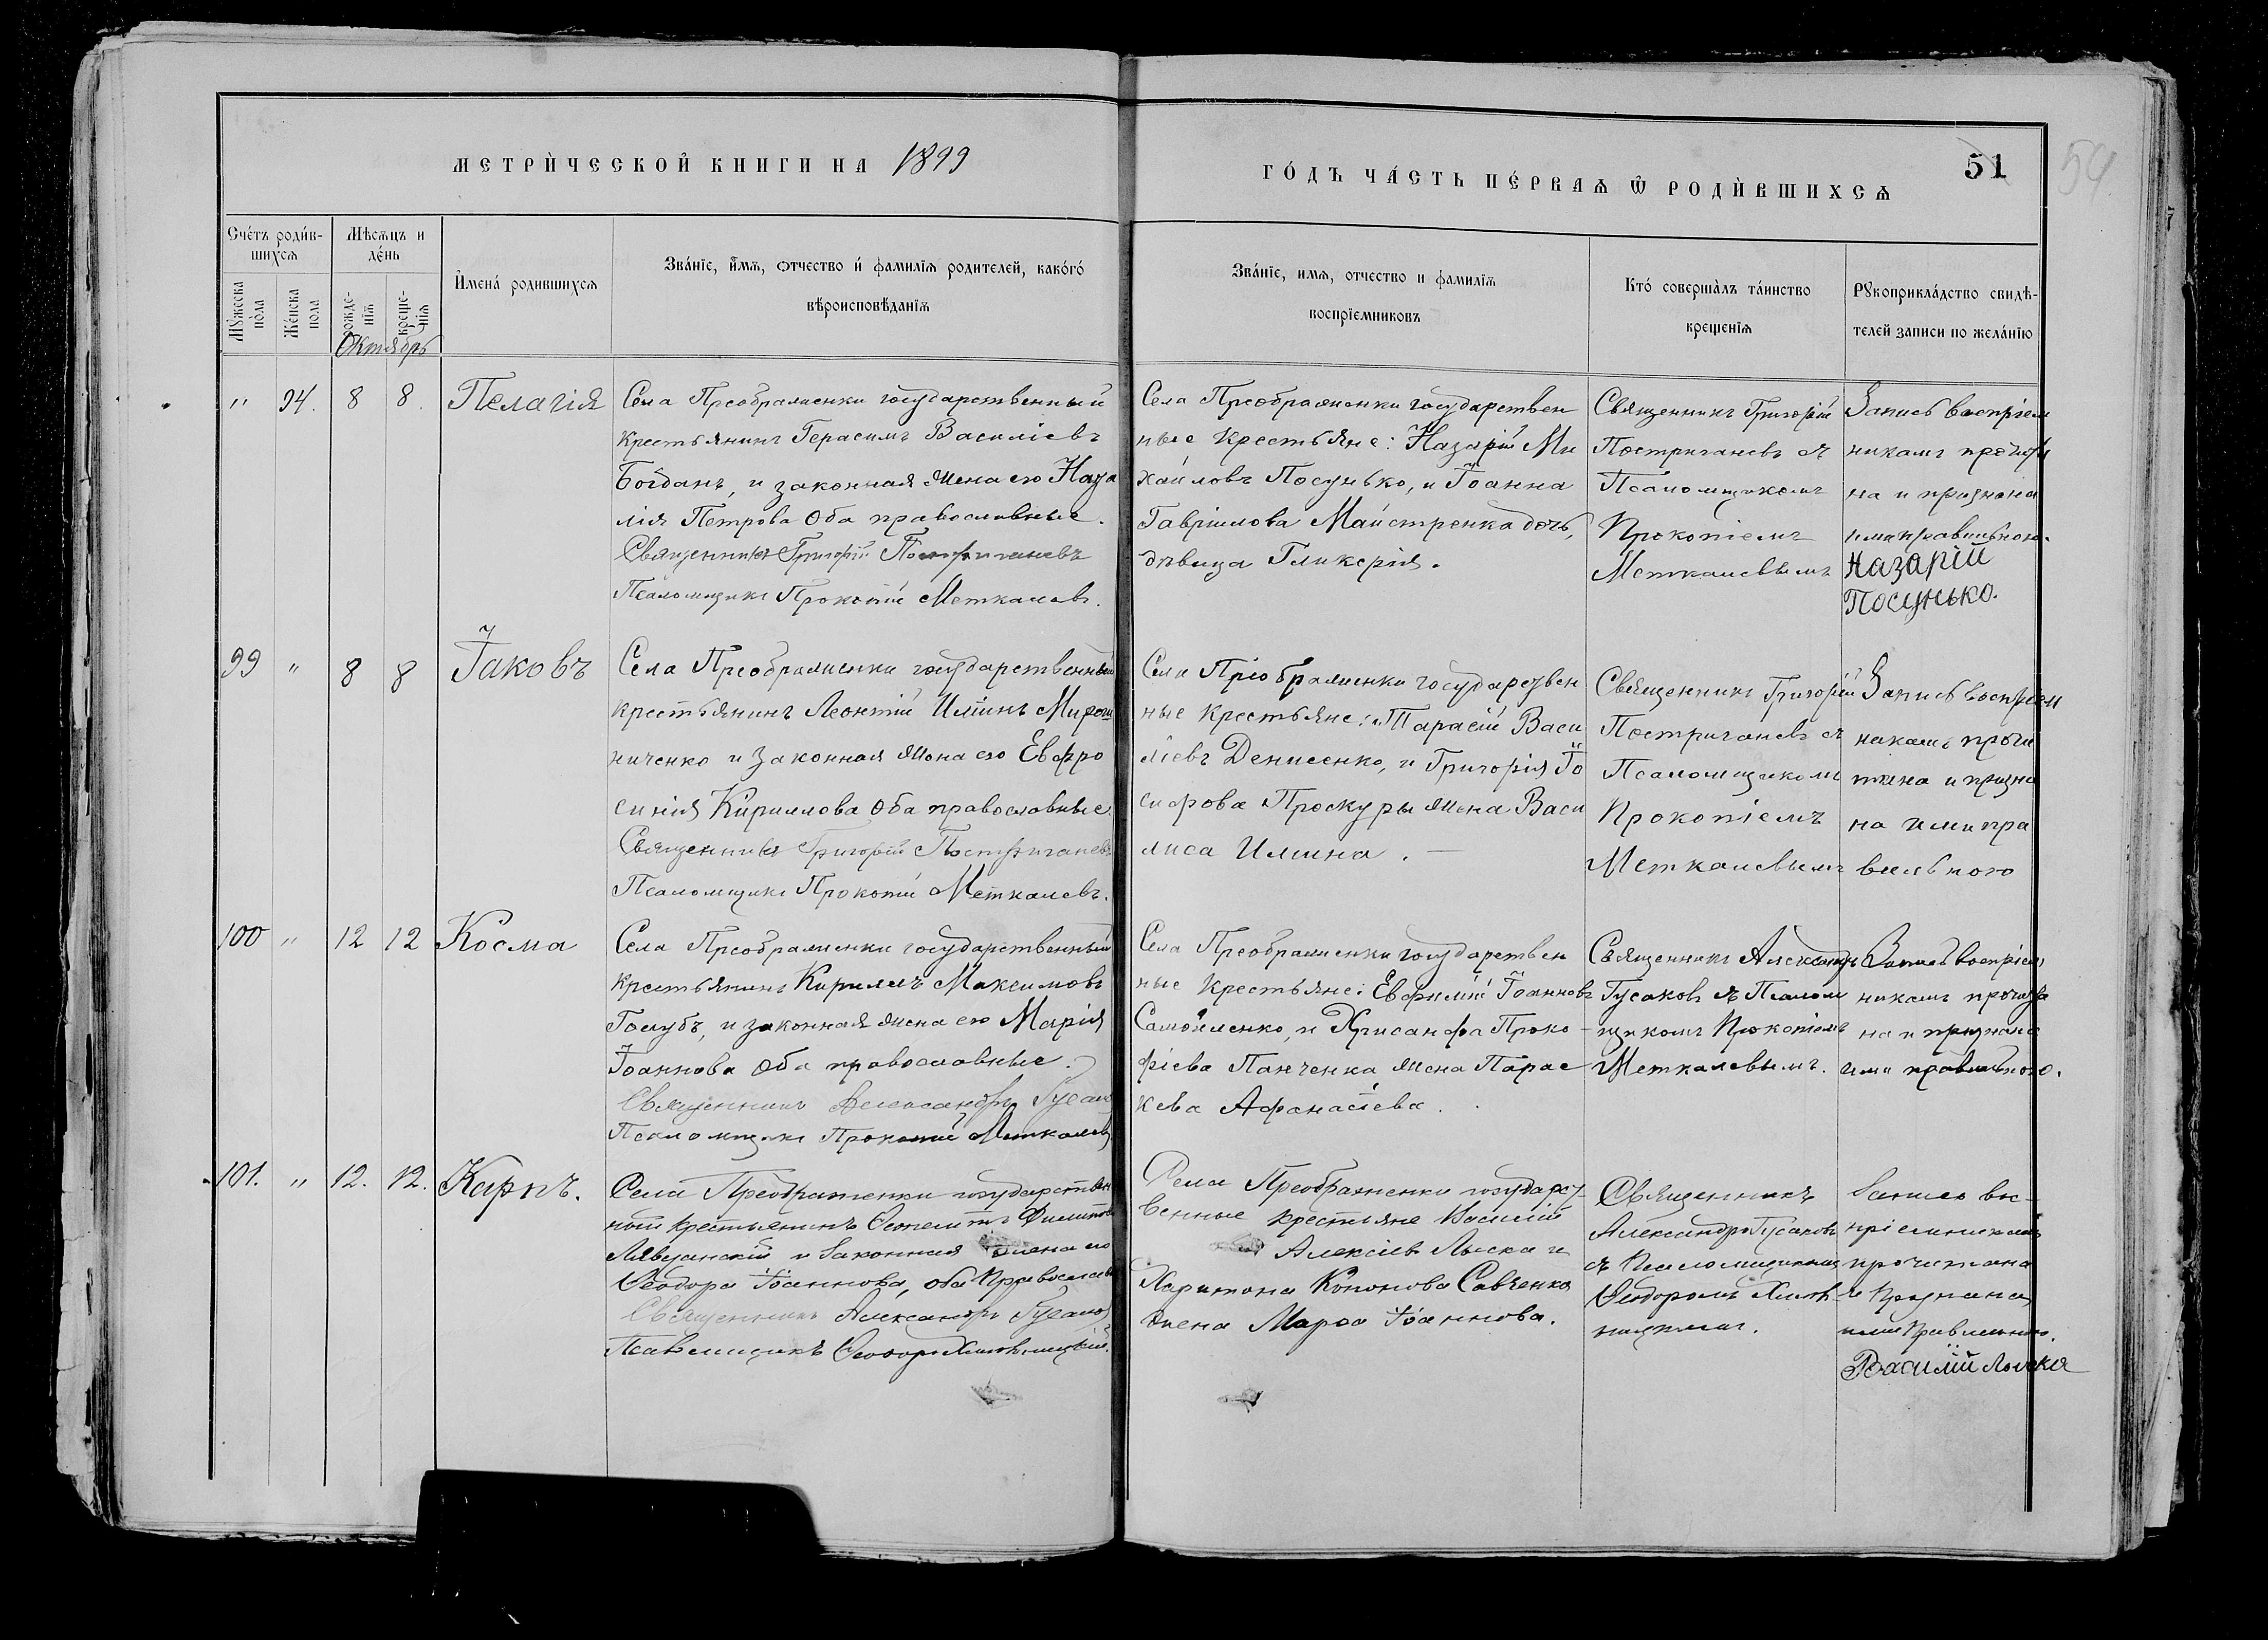 МЕТРИ́ЧЕСКОЙ КНИГИ НА 1899
ГО́ДЪ ЧА́СТЬ ПЕ́РВАѦ Ѿ РОДИ́ВШИХСѦ
51
54
Сче́тъ роди́в-
шихсѧ
Мѣсѧцъ и
де́нь
И҆мена́ родившихсѧ
Зва́нїе, и҆́мѧ, ѻтчество и҆ фамилїѧ родителей, како́гѻ
вѣроисповѣданїѧ
Зва́нїе, имѧ, отчество и фамилїѧ
воспрїемниковъ
Кто́ совершалъ та́инство
крещенїѧ
Рꙋкоприкла́дство свидѣ-
телей записи по жела́нїю
Мꙋжеска
по́ла
Же́нска
пола
рожде-
нїѧ
креще-
нїѧ
Октябрь
" 94. 8 8. Пелагія
Села Преображенки государственный
крестьянинъ Герасимъ Василіевъ
Богданъ, и законная жена его Ната
лія Петрова оба православные.
Священникъ Григорій Постригановъ
Псаломщикъ Прокопій Меткалевъ.
Села Преображенки государствен
ные крестьяне: Назарій Ми
хайловъ Посунько, и Іоанна
Гавріилова Майстренка дочь,
дѣвица Гликерія.
Священникъ Григорій
Постригановъ съ
Псаломщикомъ
Прокопіемъ
Меткалевымъ
Запись воспріем
никамъ прочита
на и признана
ими правильною.
Назарій
Посунько.
99 " 8 8 Іаковъ
Села Преображенки государственный
крестьянинъ Леонтій Илiинъ Мирош
ниченко и законная жена его Евфро
синія Кириллова оба православные
Священникъ Григорій Постригановъ
Псаломщикъ Прокопій Меткалевъ.
Села Преображенки государствен
ные крестьяне: Тарасій Васи
ліевъ Денисенко, и Григорія Іо
сифова Проскуры жена Васи
лиса Илiина. —
Священникъ Григорій
Постригановъ съ
Псаломщикомъ
Прокопіемъ
Меткалевымъ
Запись воспріем
никамъ прочи
тана и призна
на ими пра
вильною
100 " 12 12 Косма
Села Преображенки государственный
крестьянинъ Кириллъ Максимовъ
Голубъ, и законная жена его Марія
Іоаннова оба православные.
Священникъ Александръ Гусаковъ
Псаломщикъ Прокопій Меткалевъ
Села Преображенки государствен
ные крестьяне: Евфимій Іоанновъ
Самойленко, и Хрисанфа Проко-
фіева Панченка жена Парас
кева Афанасіева.
Священникъ Александръ
Гусаковъ съ Псалом
щикомъ Прокопіемъ
Меткалевымъ.
Запись воспріем
никамъ прочита
на и признана
ими правильною.
101. " 12. 12. Карпъ.
Села Преображенки государствен
ный крестьянинъ Филиппов
и законная жена его
Ѳеодора Іоаннова, оба Православн
Священникъ Александръ Гусаковъ
Ѳеодоръ
Села Преображенки государст-
венные крестьяне Василій
Алексіевъ Лыска и
Харитона Кононова Савченка
жена Марѳа Іоаннова.
Священникъ
Александръ Гусаковъ
съ Псаломщикомъ
Ѳеодоромъ
Запись вос-
пріемникамъ
прочитана
и Признана
ими Правильною.
Василій Лыска